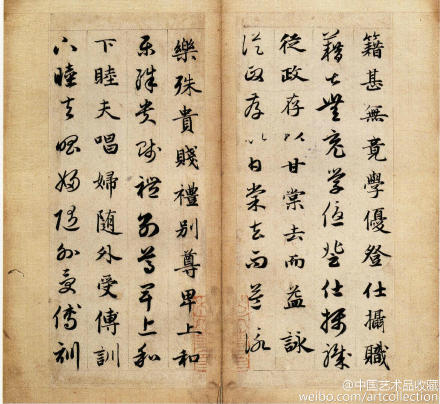 籍甚無竟學優登仕攝職
籍甚無竟學優登仕攝職
從政存以甘棠去而益詠
從政存以甘棠去而益詠
樂殊貴賤禮別尊卑上和
樂殊貴賤禮別尊卑上和
下睦夫唱婦隨外受傅訓
下睦夫唱婦隨外受傅訓
@中国艺术品收藏
weibo.com/artcollection